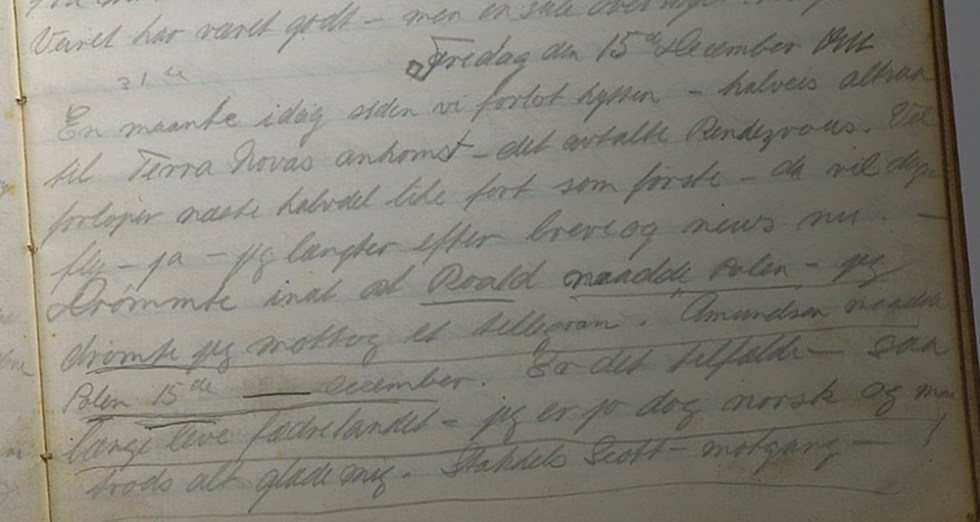 Veiret har været godt – men en
Fredag den 15de December 1911
31 de
En maante idag siden vi forlot hytten – halveis altsaa
til Terra Novas ankomst – det avtalte Rendezvous. Vil
forløper næste halvdel like fort som første – da vil
fly – ja – jeg længter efter breve og news nu. –
Drømmte inat at Roald naadde Polen – jeg
drømte jeg mottog et tellegram. "Amundsen naadde
Polen 15de December. Er det tilfælde – saa
længe leve fædrelandet – jeg er jo dog norsk og maa
trods alt glæde mig. Stakkels Scott – motgang – !